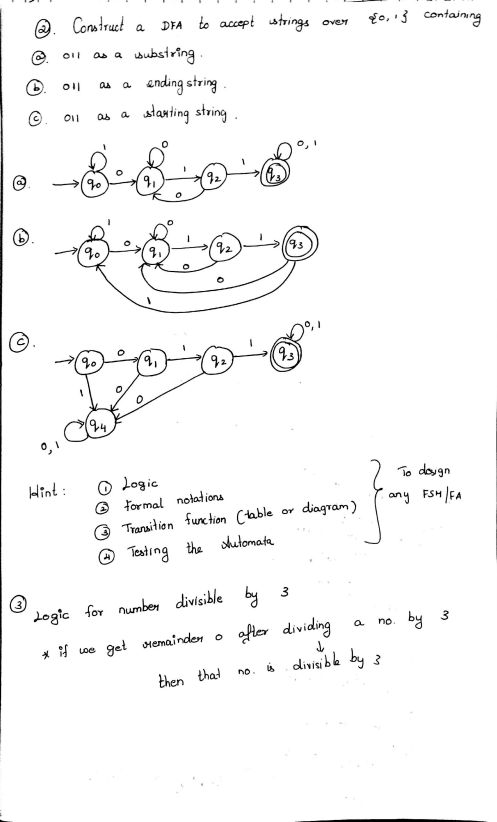 ②. Construct a DFA to accept strings over {0,1} containing
ⓐ. 011 as a substring.
ⓑ. 011 as a ending string.
ⓒ. 011 as a starting string.
ⓐ. q0 1 0 q1 0 1 0 q2 1 q3 0,1
ⓑ. q0 1 0 q1 0 1 0 q2 1 q3 0 1
ⓒ. q0 0 q1 1 q2 1 q3 0,1
1 0 0
q4
0,1
Hint: ① Logic
② Formal notations
③ Transition function (table or diagram)
④ Testing the Automata
} To design
any FSM/FA
③ Logic for number divisible by 3
* if we get remainder 0 after dividing a no. by 3
↓
then that no. is divisible by 3